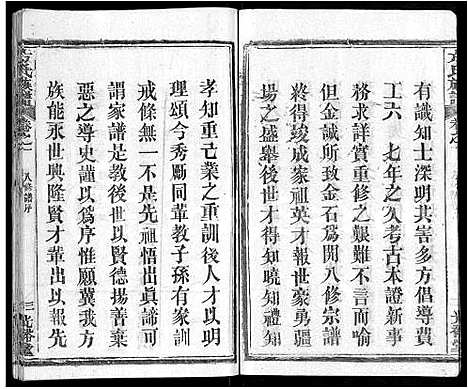 有識知士深明其害多方倡導費
工六 七年之久考古本證新事
務求詳實重修之艱難不言而喻
但金誠所致金石爲開八修宗譜
終得竣成家祖英才報世豪勇疆
揚之盛舉後世才士方可知禮知
孝知重亡業之重訓後人才以明
理頌今秀勵同輩教子孫有家訓
戒條無一不是先祖悟出真諦可
謂家譜是教後世以賢德揚善棄
惡之導史謹以爲序惟願冀我方
族能永世興隆賢才輩出以報先
氏族譜 卷之一 八修譜序 三